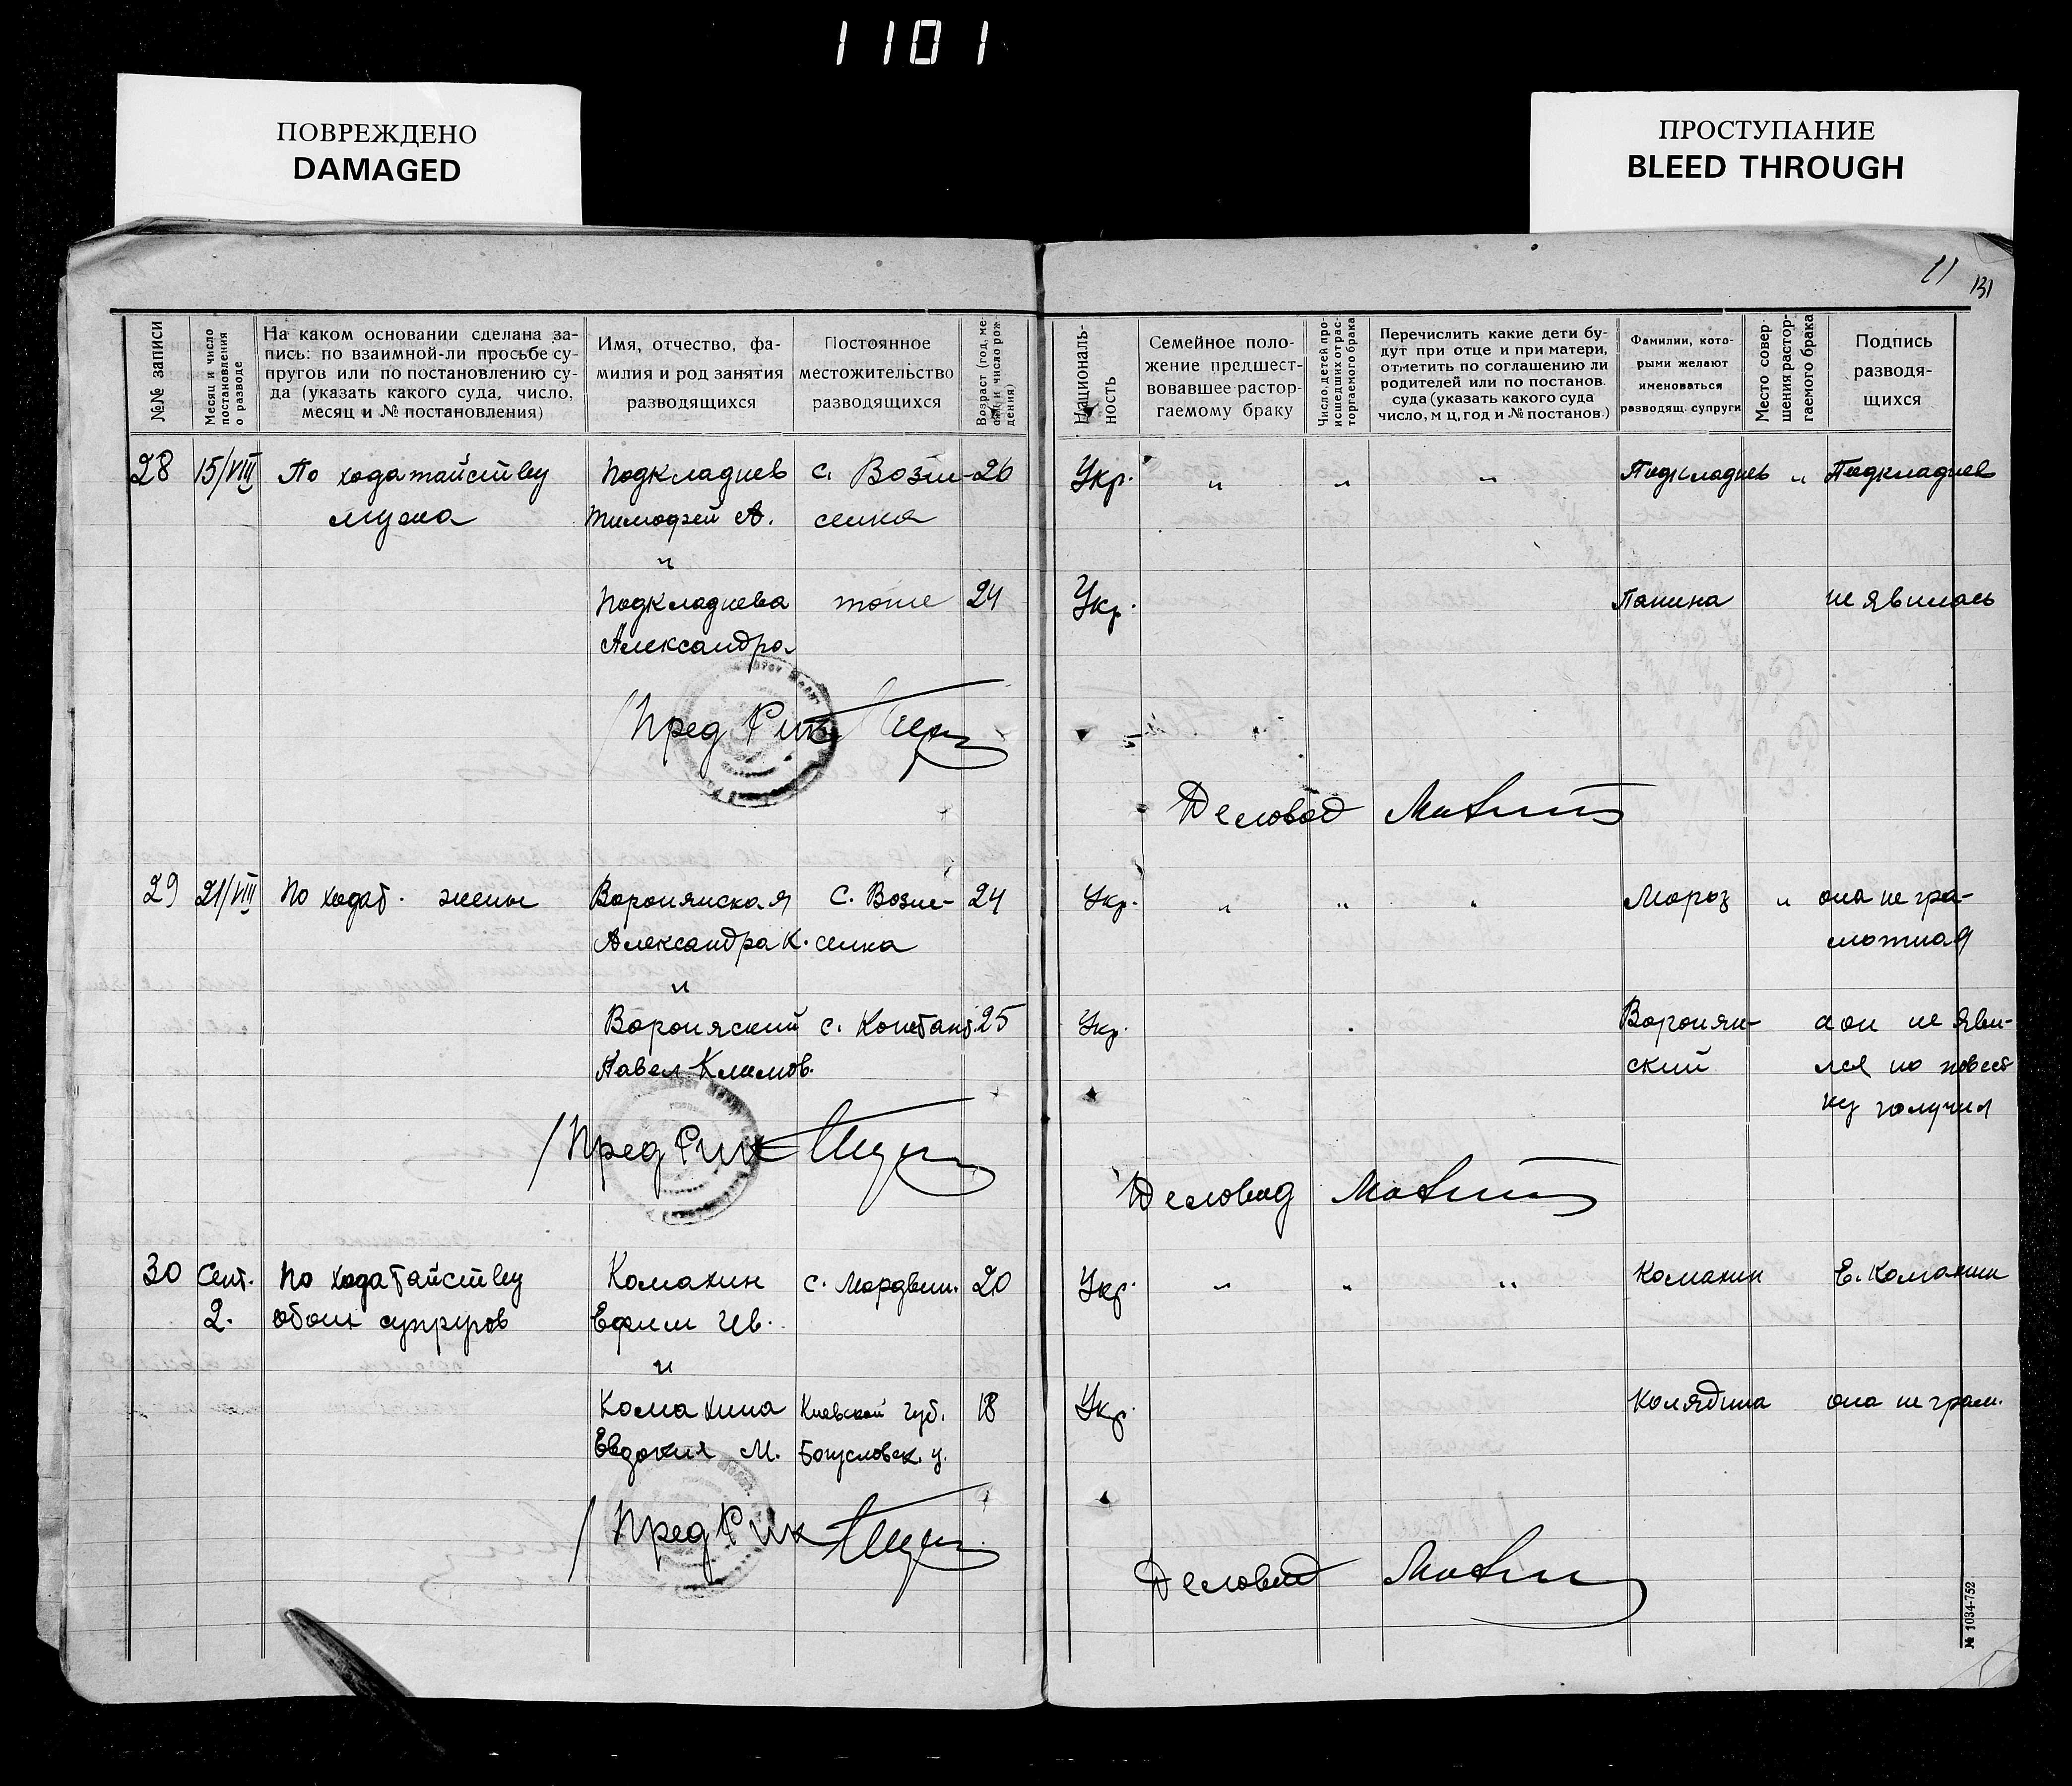 1101
ПОВРЕЖДЕНО
DAMAGED
ПРОСТУПАНИЕ
BLEED THROUGH
11
131
№№ записи
Месяц и число
постановления
о разводе
На каком основании сделана за-
пись: по взаимной-ли просьбе су-
пругов или по постановлению су-
да (указать какого суда, число,
месяц и № постановления)
Имя, отчество, фа-
милия и род занятия
разводящихся
Постоянное
местожительство
разводящихся
Возраст (год, ме-
сяц и число рож-
дения)
Националь-
ность
Семейное поло-
жение предшест-
вовавшее растор-
гаемому браку
Число детей про-
исшедших от рас-
торгаемого брака
Перечислить какие дети бу-
дут при отце и при матери,
отметить по соглашению ли
родителей или по постанов.
суда (указать какого суда
число, м-ц, год и № постанов.)
Фамилии, кото-
рыми желают
именоваться
разводящ. супруги
Место совер-
шения растор-
гаемого брака
Подпись
разводя-
щихся
28 15/VIII По ходатайству Подкладнев с. Возне- 26 Укр. " " " Подкладнев " Подкладнев
мужа Тимофей А. сенка
и
Подкладнева тоже 24 Укр. Панина не явилась
Александра
Пред Рик
Деловод
29 21/VIII По ходат. жены Воронянская с. Возне- 24 Укр. " " " Мороз " она не гра-
Александра К. сенка мотная
и
Вороняский с. Констант. 25 Укр. Воронян- а он не яви-
Павел Климов. ский лся но повест
ку получил
Пред Рик
Деловод
30 Сент. По ходатайству Комахин с. Мордвин. 20 Укр. " " " Комахин Е. Комахин
2. обоих супругов Ефим Ив.
и
Комахина Киевской губ. 18 Укр. Колядина она не грам.
Евдокия М. Богусловск. у.
Пред Рик
Деловод
№ 1034-752